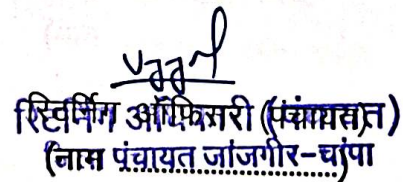 रिटर्निंग ऑफिसर (पंचायत)
(नाम पंचायत जांजगीर-चांपा